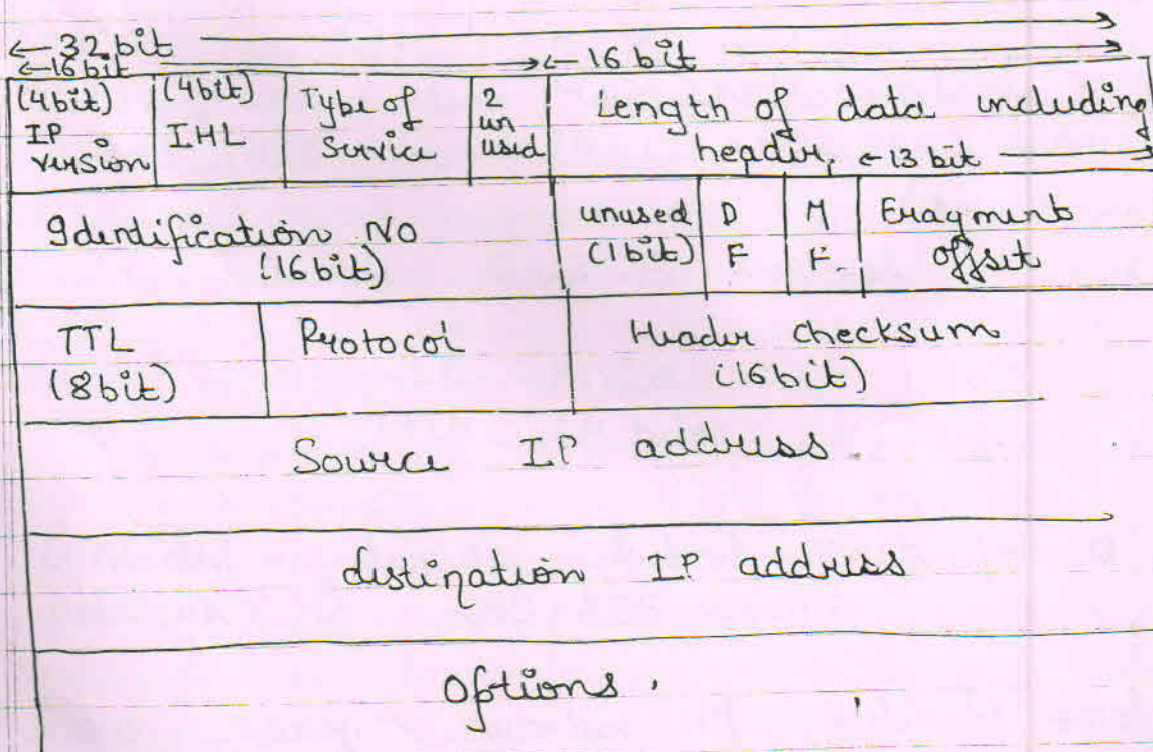 32 bit
16 bit
16 bit
(4bit) IP version
(4bit) IHL
Type of Service
2 un used
Length of data including header.
13 bit
Identification No (16 bit)
unused (1bit)
D F
M F
Fragment offset
TTL (8bit)
Protocol
Header checksum (16 bit)
Source IP address.
destination IP address
Options.